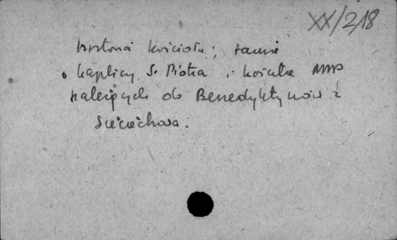 XX/218
historia kościoła; tamże
kaplicy S. Piotra i kościoła NMP
należących do Benedyktynów z
Sieciechowa.